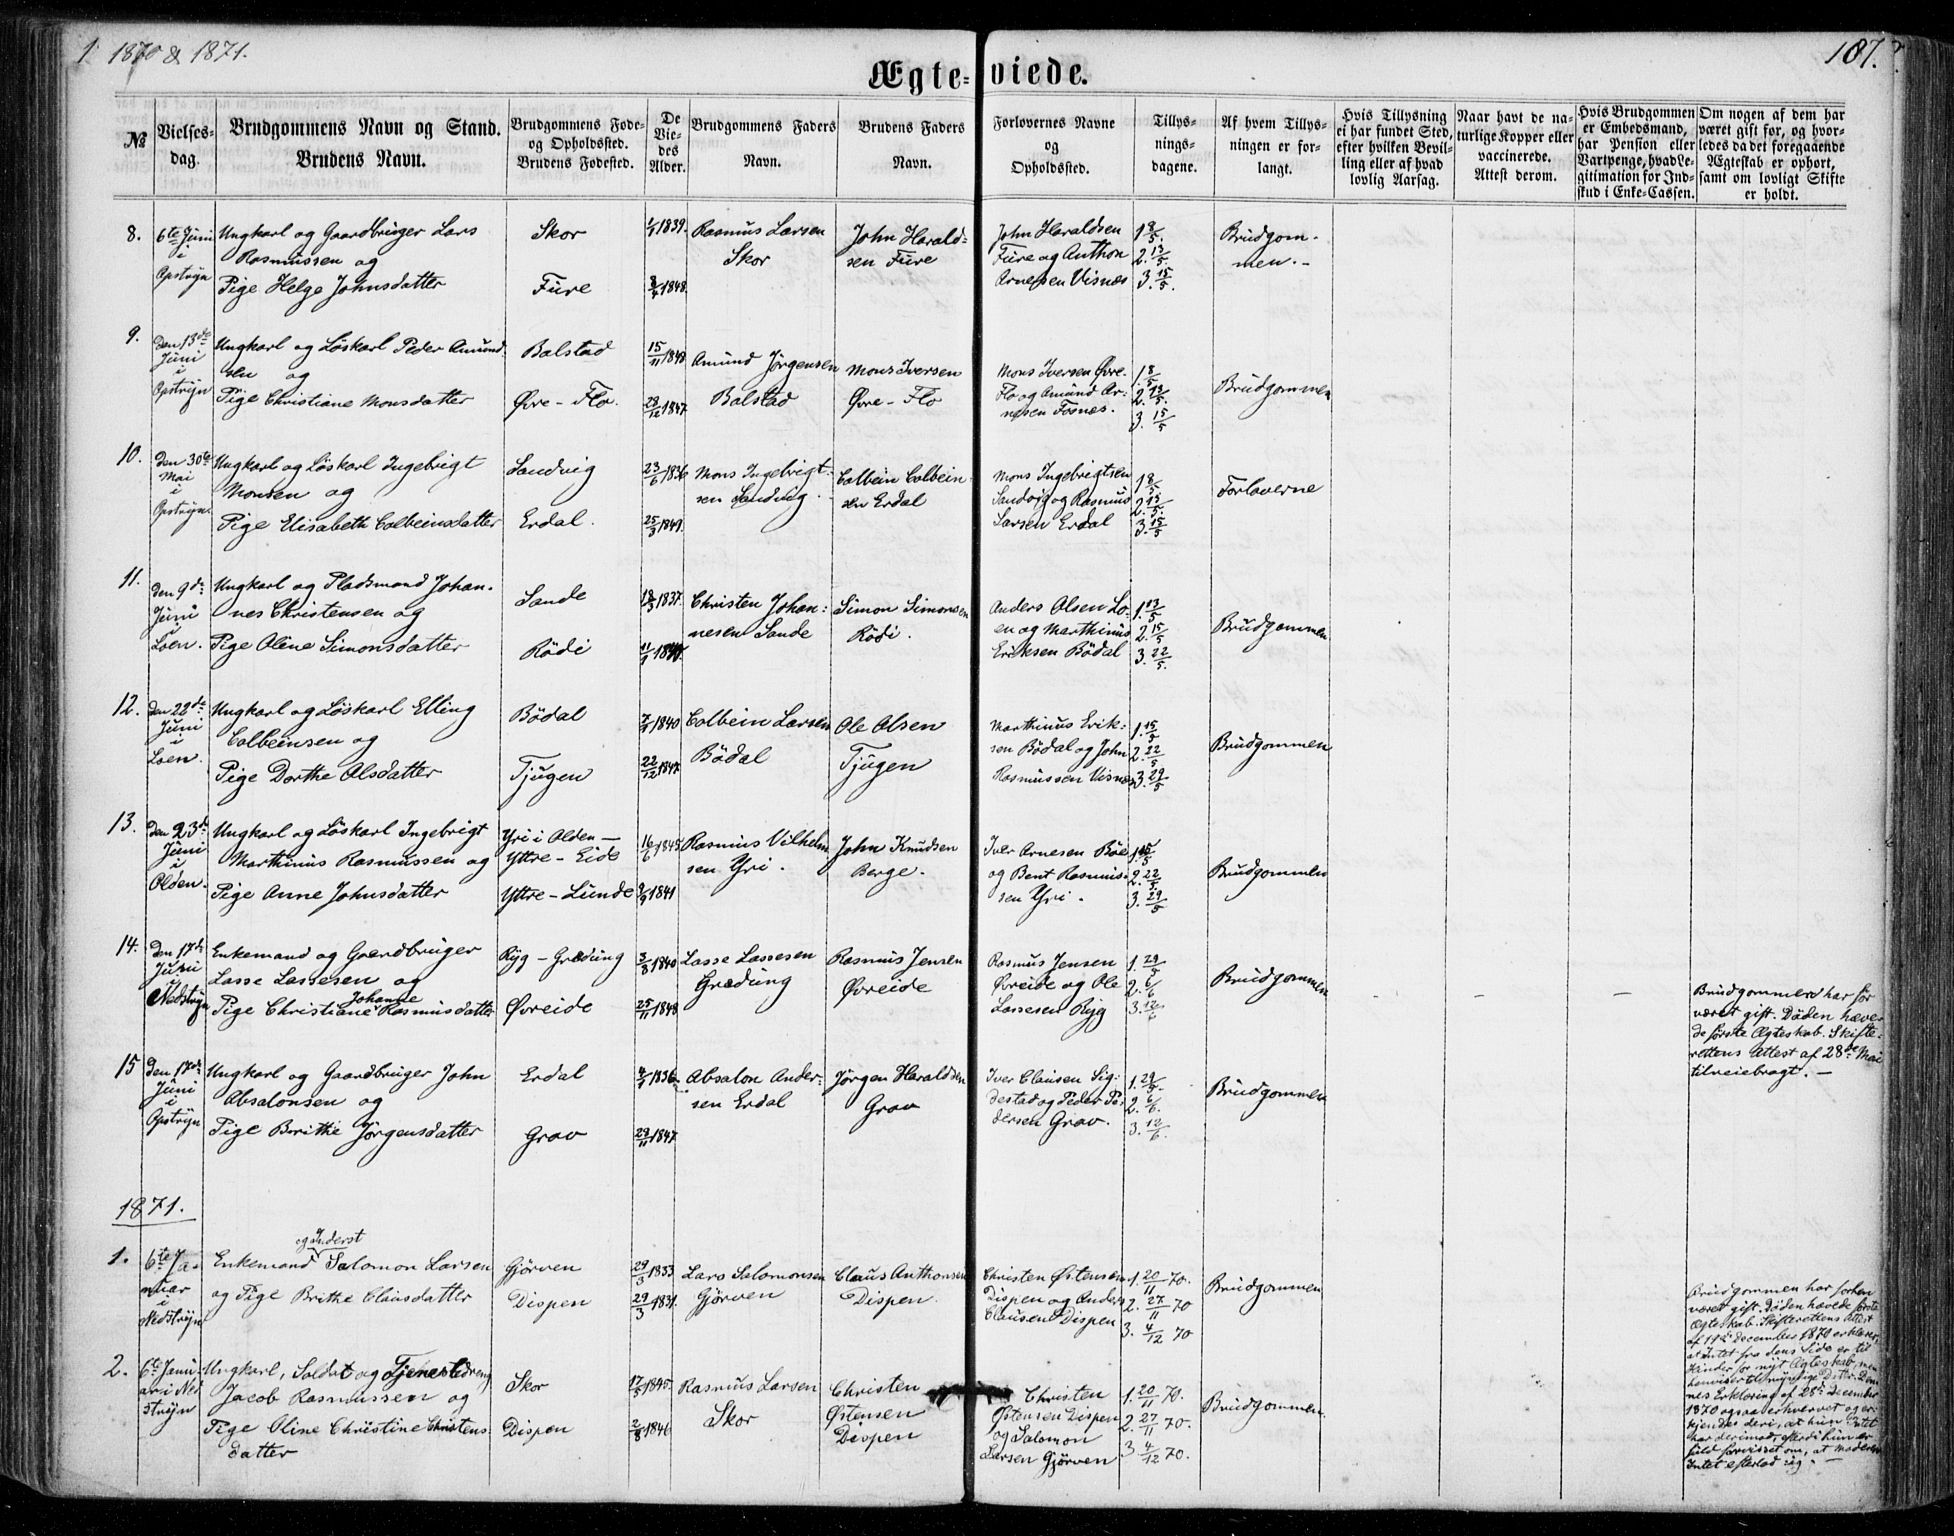 1 1870 & 1871.
107.
Ægte-viede.
№
Vielses-dag.
Brudgommens Navn og Stand.
Brudens Navn.
Brudgommens Føde- og Opholdssted.
Brudens Fødested.
De Viedes Alder.
Brudgommens Faders Navn.
Brudens Faders Navn.
Forlovernes Navne og Opholdssted.
Tillysningsdagene.
Af hvem Tillysningen er forlangt.
Hvis Tillysning ei har fundet Sted, efter hvilken Bevilling eller af hvad lovlig Aarsag.
Naar havt de naturlige Kopper eller vaccinerede. Attest derom.
Hvis Brudgommen er Embedsmand, har Pension eller Vartpenge, hvad Legitimation for Indskud i Enke-Cassen.
Om nogen af dem har været gift før, og hvorledes da det foregaaende Ægteskab er ophørt, samt om lovligt Skifte er holdt.
8. 6te Juni i Opstryn
Ungkarl og Gaardbruger Lars
Rasmussen og
Pige Helge Johnsdatter
Skor
Füre
1839.
1848.
Rasmus Larsen
Skor
John Harald-
sen Füre
John Haraldsen
Füre og Anthon
Arnesen Visnes
1. 8/5.
2. 13/5.
3. 15/5.
Brudgom-
men.-
9. Den 13de Juni i Opstryn
Ungkarl og Löskarl Peder Amund
sen og
Pige Christiane Monsdatter
Balstad
Øvre-Flo.
15/11 1848
28/12 1847
Amund Jörgensen
Balstad
Mons Iversen
Øvre-Flo
Mons Iversen Øvre-
Flo og Amund Ar-
nesen Fosnes.
1. 8/5
2. 13/5.
3. 15/5
Brudgommen
10. Den 30te Mai i Opstryn
Ungkarl og Löskarl Ingebrigt
Monsen og
Pige Elisabeth Colbeinsdatter
Sandvig
Erdal.
23/6 1836
25/3 1849.
Mons Ingebrigt-
sen Sandvig.
Colbein Colbein-
sen Erdal
Mons Ingebrigtsen
Sandvig og Rasmus
Larsen Erdal
1. 8/5
2. 13/5.
3. 15/5
Forloverne
11. Den 9de Juni i Loen.
Ungkarl og Pladsmand Johan-
nes Christensen og
Pige Oline Simonsdatter
Sande
Rödi
18/3 1837.
Christen Johan-
nesen Sande
Simon Simonsen
Rödi.
Anders Olsen Lo-
en og Marthinus
Eriksen Bödal
1. 13/5
2. 15/5
3. 22/5.
Brudgommen
12. Den 22de Juni i Loen.
Ungkarl og Löskarl Elling
Colbeinsen og
Pige Dorthe Olsdatter
Bödal
Tjugen
1840
22/12 1847.
Colbein Larsen
Bödal
Ole Olsen
Tjugen
Marthinus Erik-
sen Bödal og John
Rasmussen Visnes
1. 15/5
2. 22/5
3. 29/5
Brudgommen
13. Den 23de Juni i Olden.
Ungkarl og Löskarl Ingebrigt
Marthinus Rasmussen og
Pige Anne Johnsdatter
Yri i Olden-
Yttre-Eide
Yttre-Lunde
16/6 1845
1841
Rasmus Vilhelm
sen Yri.
John Knudsen
Berge.
Iver Arnesen Böe
og Bent Rasmus-
sen Yri.
1. 15/5
2. 22/5
3. 29/5
Brudgommen
14. Den 17de Juni i Nedstryn
Enkemand og Gaardbruger
Lasse Lassesen og
Johande
Pige Christiane Rasmusdatter
Ryg-Grædung
Øvreide
3/8 1840
25/11 1848
Lasse Lassesen
Grædung
Rasmus Jensen
Øvreide
Rasmus Jensen
Øvreide og Ole
Lassesen Ryg
1. 29/5
2. 6/6
3. 12/6
Brudgommen
-
-
-
Brudgommen har för
været gift. Döden hæve-
de förste Ægteskab. Skifte-
rettens Attest af 28de Mai
tilveiebragt.-
15 Den 17de Juni i Opstryn
Ungkarl og Gaardbruger John
Absalonsen og
Pige Berithe Jörgensdatter
Erdal
Grov
1836
29/11 1847.
Absalon Ander-
sen Erdal
Jörgen Haraldsen
Grov
Iver Clausen Sig-
destad og Peder Pe-
dersen Grov.
1. 29/5.
2. 6/6.
3. 12/6.
Brudgommen
1871.
1. 6te Ja-nuar i Nedstryn
og Inderst
Enkemand Salomon Larsen
og Pige Brithe Clausdatter
Gjörven
Dispen
29/3 1833
29/3 1831.
Lars Salomonsen
Gjörven
Claus Anthonsen
Dispen.
Christen Østensen
Dispen og Anders
Clausen Dispen
1. 20/11 70.
2. 27/11 70
3. 4/12 70
Brudgommen
Brudgommen har forhen
været gift. Döden hævede förste
Ægteskab. Skifterettens Attest
af 19de December 1870 erklærer,
at Intet fra dens Side er til
Hinder for nyt Ægteskab, men
henviser til
nes Erklæring af 28de December
1870 ogsaa erhvervet og er-
kjendes deri, at hun Intet
har derimod, efterdi hun er
fuld forvisset om, at Moderen
Intet efterlod sig.-
2. 6te Janu-ar i Ned-stryn
Ungkarl, Soldat og Tjenestedreng
Jacob Rasmussen og
Pige Oline Christine Christens-
datter
Skor
Dispen
17/5 1845.
2/8 1846
Rasmus Larsen
Skor
Christen
Østensen
Dispen
Christen
Østensen Dispen
og Salomon
Larsen Gjörven
1. 20/11 70.
2. 27/11 70.
3 4/12 70.
Brudgommen.